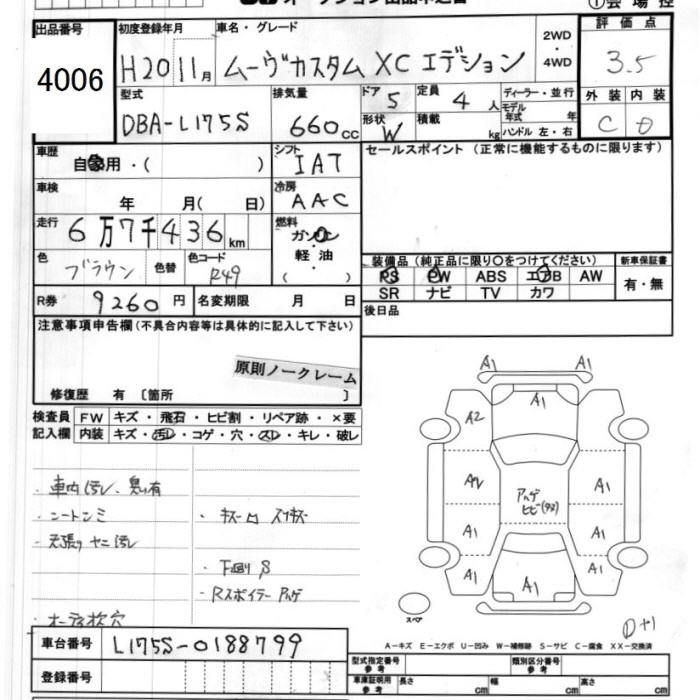 オークション出品申込書 ①会場控
出品番号 初度登録年月 車名・グレード 2WD・4WD 評価点
4006 H20 11月 ムーヴカスタム XC エデション 3.5
型式 排気量 ドア 5 定員 4人 ディーラー・並行 外装 内装
DBA-L175S 660cc 形状 W 積載 kg モデル年式 年 C D
ハンドル 左・右
車歴 自家用・( ) シフト IAT セールスポイント (正常に機能するものに限ります)
車検 年 月( 日) 冷房 AAC
走行 6万7千436km 燃料 ガソリン・軽油 ( )
色 ブラウン 色替 色コード R49 装備品 (純正品に限り〇をつけてください) 新車保証書
PS PW ABS エアB AW 有・無
R券 9260円 名変期限 月 日 SR ナビ TV カワ
注意事項申告欄 (不具合内容等は具体的に記入して下さい) 後日品
原則ノークレーム
修復歴 有 〔箇所 〕
検査員 FW キズ・飛石・ヒビ割・リペア跡・×要
記入欄 内装 キズ・汚レ・コゲ・穴・スレ・キレ・破レ
A1 A1
A1
A2
・車内汚レ、臭い有
・シートシミ ・キズ
・天張りヤニ汚レ
・下回りS
・Rスポイラーアルゲ
A1
A1 A1
A1 A1
A1
スペア
D+1
車台番号 L175S-0188799
A-キズ E-エクボ U-凹み W-補修跡 S-サビ C-腐食 XX-交換済
登録番号
型式指定番号 参考 類別区分番号 参考
車庫証明用 参考 長さ cm 幅 cm 高さ cm